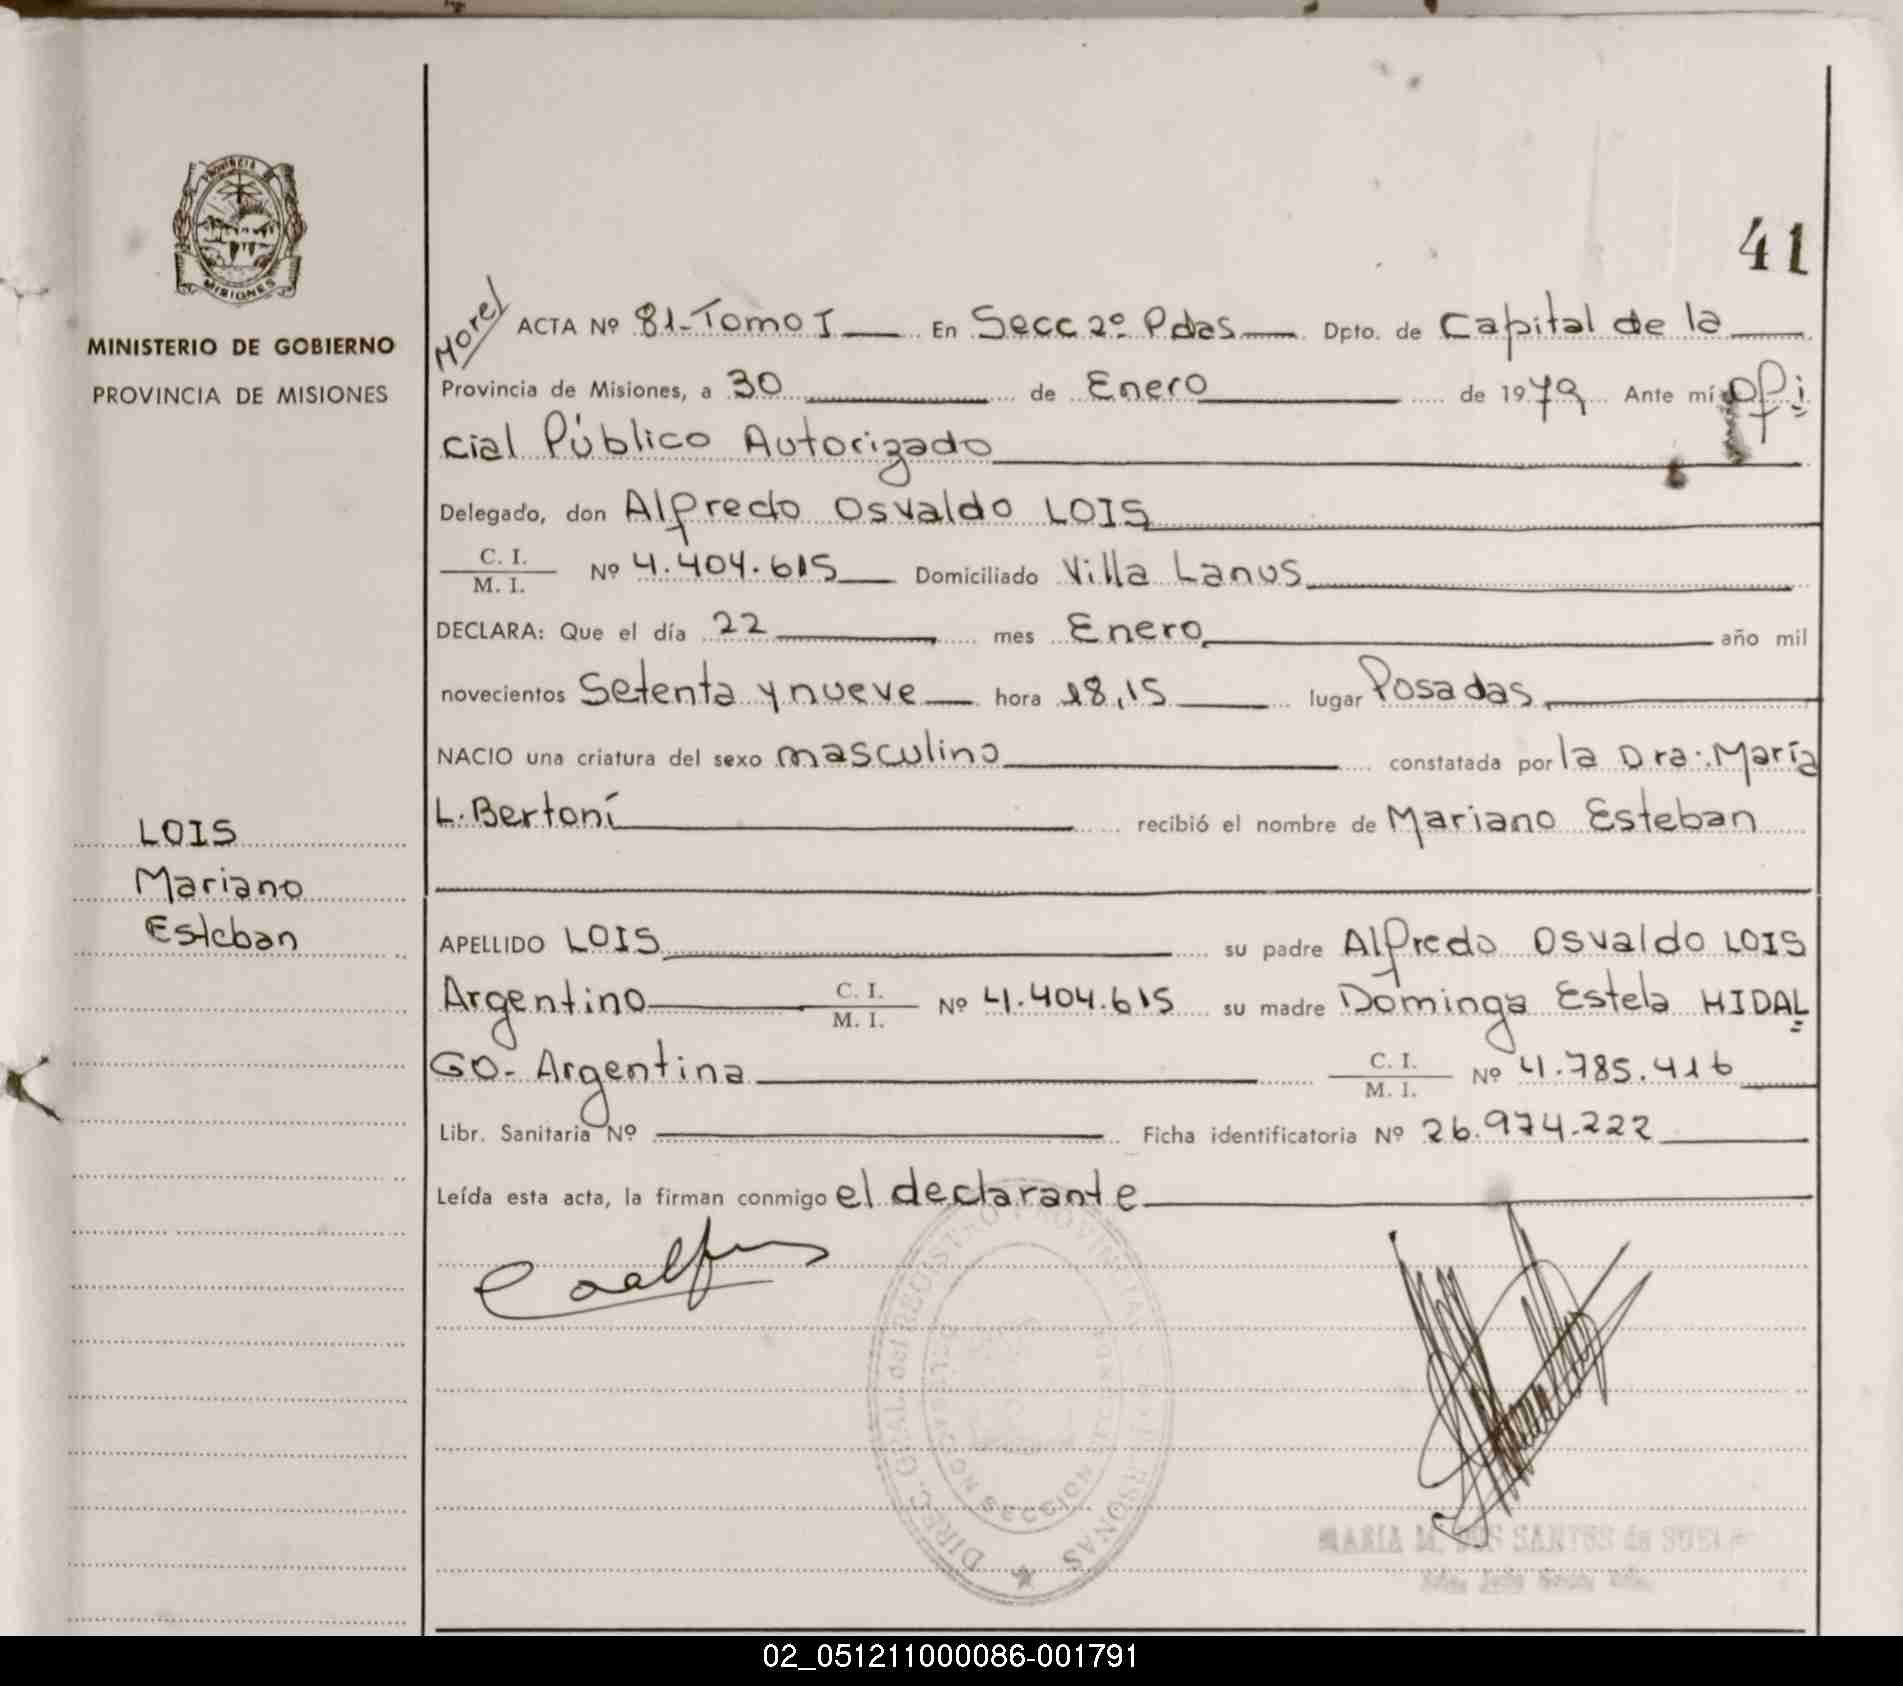 PROVINCIA
MISIONES
MINISTERIO DE GOBIERNO
PROVINCIA DE MISIONES
LOIS
Mariano
Esteban
41
Morel
ACTA Nº 81-Tomo I En Secc 2º Pdas Dpto. de Capital de la
Provincia de Misiones, a 30 de Enero de 1979 Ante mí Ofi
cial Público Autorizado
Delegado, don Alfredo Osvaldo LOIS
C. I.
M. I. Nº 4.404.615 Domiciliado Villa Lanus
DECLARA: Que el día 22 mes Enero año mil
novecientos Setenta y nueve hora 18,15 lugar Posadas
NACIO una criatura del sexo masculino constatada por la Dra: María
L. Bertoní recibió el nombre de Mariano Esteban
APELLIDO LOIS su padre Alfredo Osvaldo LOIS
Argentino C. I. M. I. Nº 4.404.615 su madre Dominga Estela HIDAL
GO- Argentina C. I. M. I. Nº 4.785.416
Libr. Sanitaria Nº Ficha identificatoria Nº 26.974.222
Leída esta acta, la firman conmigo el declarante
DIREC. GRAL del REGISTRO PROVINCIAL PERSONAS
SECCION
MARIA M. DOS SANTOS de
02_051211000086-001791